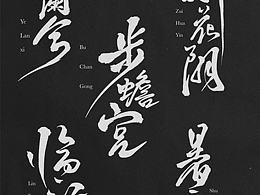 阑兮
Ye
Lan
xi
步蟾宫
Bu
Chan
Gong
花阴
Zui
Hua
Yin
临
Lin
暑
Shu